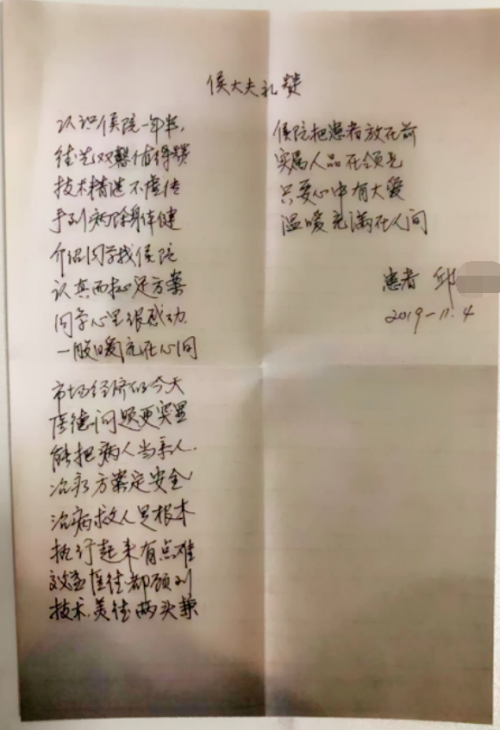 侯大夫礼赞
认识侯院一年半,
德艺双馨值得赞
技术精湛不虚传
手到病除身体健
介绍同学找侯院
认真细心定方案
同学心里很感动
一股暖流在心间
市场经济的今天
医德问题更突显
能把病人当亲人.
治疗方案定安全
治病救人是根本
执行起来有点难
效益医德都顾到
技术.美德两头兼
侯院把患者放在前
实属人品在领先
只要心中有大爱
温暖充满在人间
患者 邱
2019-11.4